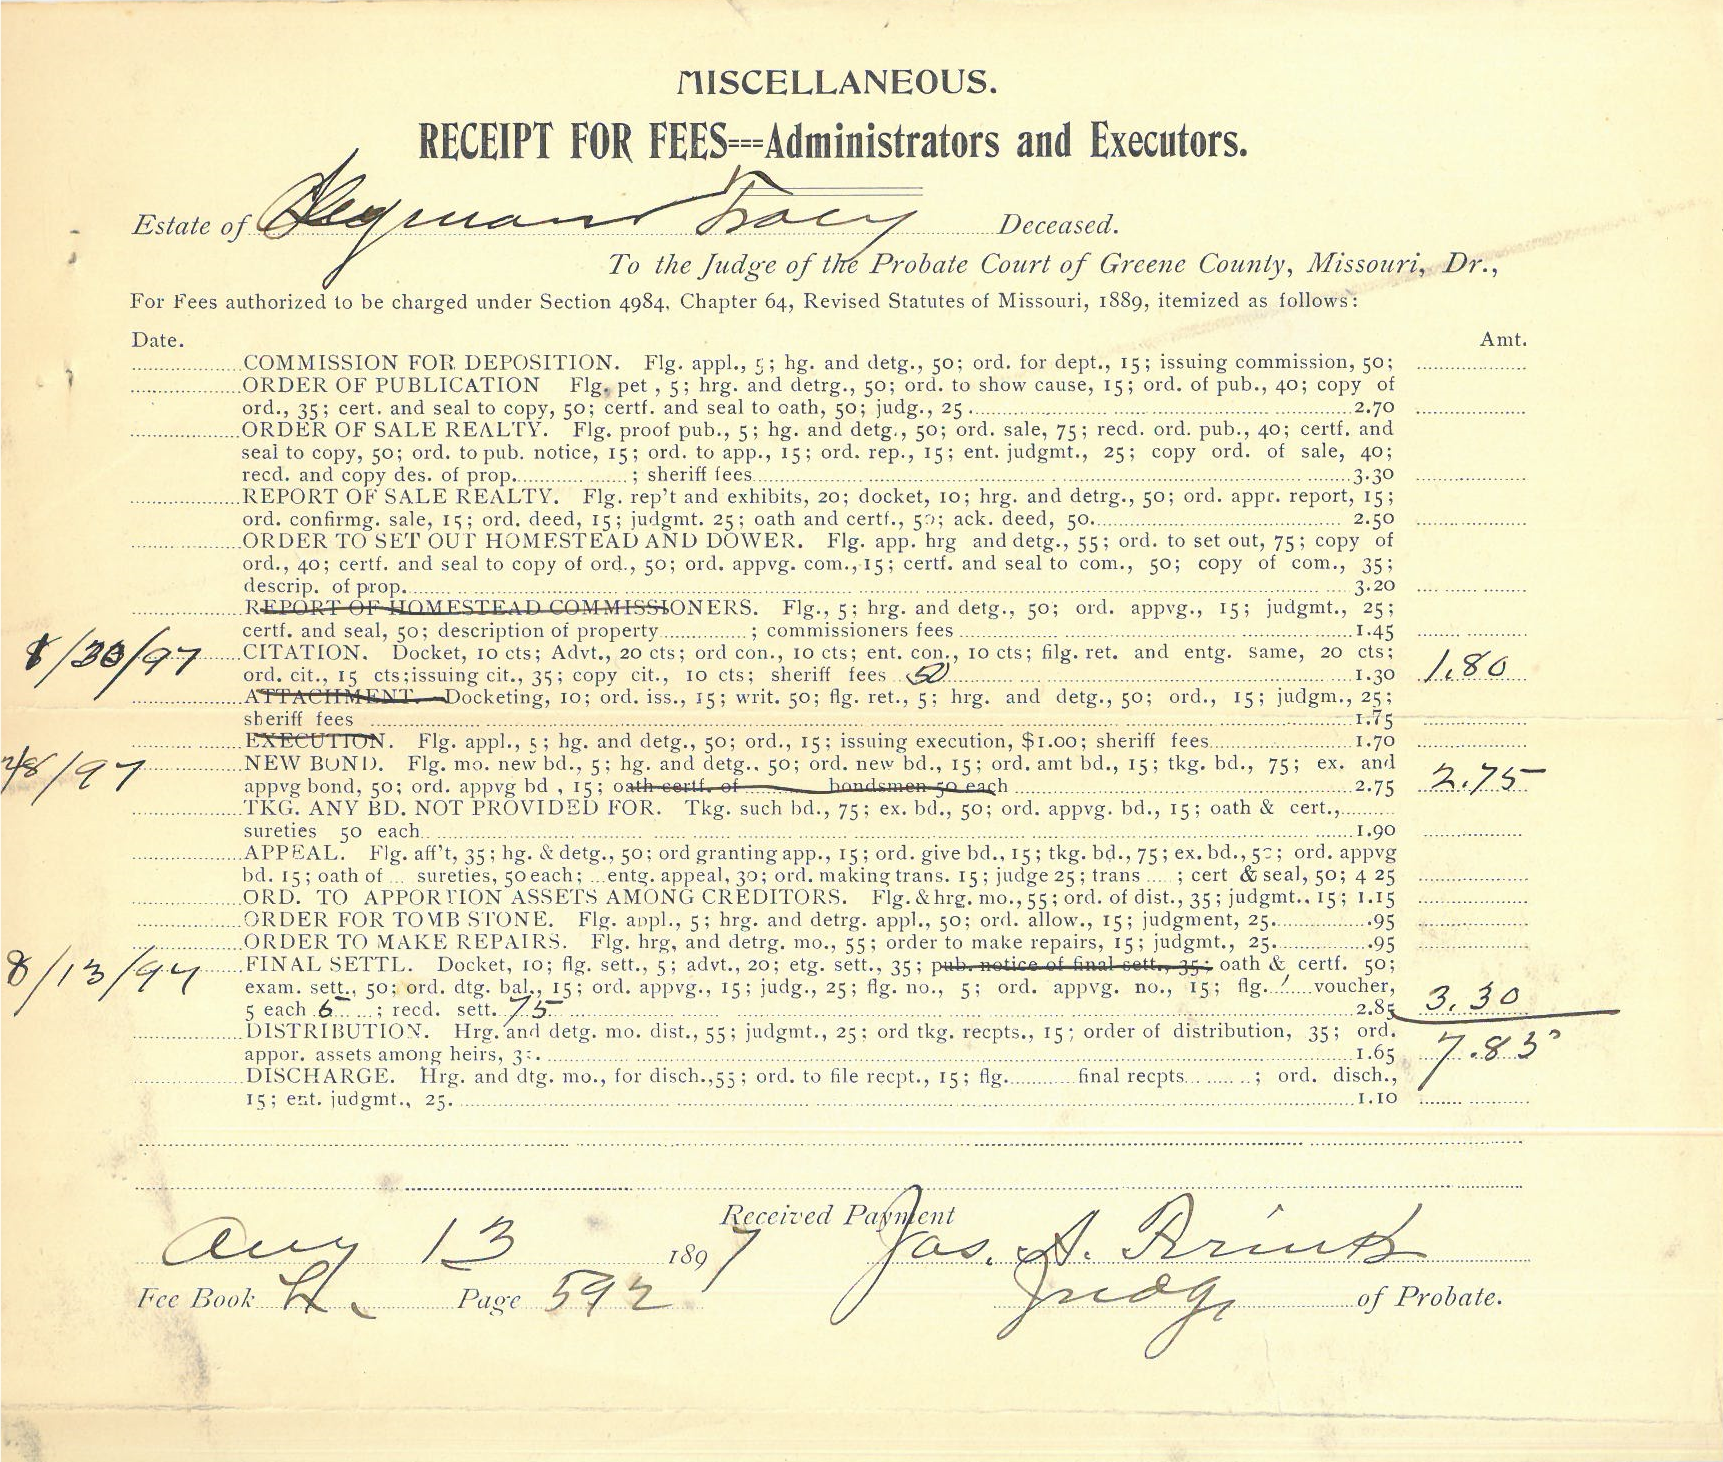 MISCELLANEOUS.
RECEIPT FOR FEES===Administrators and Executors.
Estate of Tracy Deceased.
To the Judge of the Probate Court of Greene County, Missouri, Dr.,
For Fees authorized to be charged under Section 4984, Chapter 64, Revised Statutes of Missouri, 1889, itemized as follows:
Date. Amt.
COMMISSION FOR DEPOSITION. Flg. appl., 5; hg. and detg., 50; ord. for dept., 15; issuing commission, 50;
ORDER OF PUBLICATION Flg. pet , 5; hrg. and detrg., 50; ord. to show cause, 15; ord. of pub., 40; copy of
ord., 35; cert. and seal to copy, 50; certf. and seal to oath, 50; judg., 25 2.70
ORDER OF SALE REALTY. Flg. proof pub., 5; hg. and detg., 50; ord. sale, 75; recd. ord. pub., 40; certf. and
seal to copy, 50; ord. to pub. notice, 15; ord. to app., 15; ord. rep., 15; ent. judgmt., 25; copy ord. of sale, 40;
recd. and copy des. of prop. ; sheriff fees 3.30
REPORT OF SALE REALTY. Flg. rep't and exhibits, 20; docket, 10; hrg. and detrg., 50; ord. appr. report, 15;
ord. confirmg. sale, 15; ord. deed, 15; judgmt. 25; oath and certf., 50; ack. deed, 50. 2.50
ORDER TO SET OUT HOMESTEAD AND DOWER. Flg. app. hrg and detg., 55; ord. to set out, 75; copy of
ord., 40; certf. and seal to copy of ord., 50; ord. appvg. com., 15; certf. and seal to com., 50; copy of com., 35;
descrip. of prop. 3.20
REPORT OF HOMESTEAD COMMISSIONERS. Flg., 5; hrg. and detg., 50; ord. appvg., 15; judgmt., 25;
certf. and seal, 50; description of property ; commissioners fees 1.45
8/30/97 CITATION. Docket, 10 cts; Advt., 20 cts; ord con., 10 cts; ent. con., 10 cts; filg. ret. and entg. same, 20 cts;
ord. cit., 15 cts; issuing cit., 35; copy cit., 10 cts; sheriff fees 50 1.30 1.80
ATTACHMENT. Docketing, 10; ord. iss., 15; writ. 50; flg. ret., 5; hrg. and detg., 50; ord., 15; judgm., 25;
sheriff fees 1.75
EXECUTION. Flg. appl., 5; hg. and detg., 50; ord., 15; issuing execution, $1.00; sheriff fees 1.70
/97 NEW BOND. Flg. mo. new bd., 5; hg. and detg., 50; ord. new bd., 15; ord. amt bd., 15; tkg. bd., 75; ex. and
appvg bond, 50; ord. appvg bd , 15; oath certf. of bondsmen 50 each 2.75 2.75
TKG. ANY BD. NOT PROVIDED FOR. Tkg. such bd., 75; ex. bd., 50; ord. appvg. bd., 15; oath & cert.,
sureties 50 each 1.90
APPEAL. Flg. aff't, 35; hg. & detg., 50; ord granting app., 15; ord. give bd., 15; tkg. bd., 75; ex. bd., 50; ord. appvg
bd. 15; oath of sureties, 50 each; entg. appeal, 30; ord. making trans. 15; judge 25; trans ; cert & seal, 50; 4 25
ORD. TO APPORTION ASSETS AMONG CREDITORS. Flg. & hrg. mo., 55; ord. of dist., 35; judgmt., 15; 1.15
ORDER FOR TOMB STONE. Flg. appl., 5; hrg. and detrg. appl., 50; ord. allow., 15; judgment, 25. .95
ORDER TO MAKE REPAIRS. Flg. hrg, and detrg. mo., 55; order to make repairs, 15; judgmt., 25. .95
8/13/97 FINAL SETTL. Docket, 10; flg. sett., 5; advt., 20; etg. sett., 35; pub. notice of final sett., 35; oath & certf. 50;
exam. sett., 50; ord. dtg. bal., 15; ord. appvg., 15; judg., 25; flg. no., 5; ord. appvg. no., 15; flg. 1 voucher,
5 each 5 ; recd. sett. 75 2.85 3.30
DISTRIBUTION. Hrg. and detg. mo. dist., 55; judgmt., 25; ord tkg. recpts., 15; order of distribution, 35; ord.
appor. assets among heirs, 35. 1.65 7.85
DISCHARGE. Hrg. and dtg. mo., for disch., 55; ord. to file recpt., 15; flg. final recpts ; ord. disch.,
15; ent. judgmt., 25. 1.10
Received Payment
Aug 13 1897 Jas. A.
Fee Book Page 592 Judge of Probate.